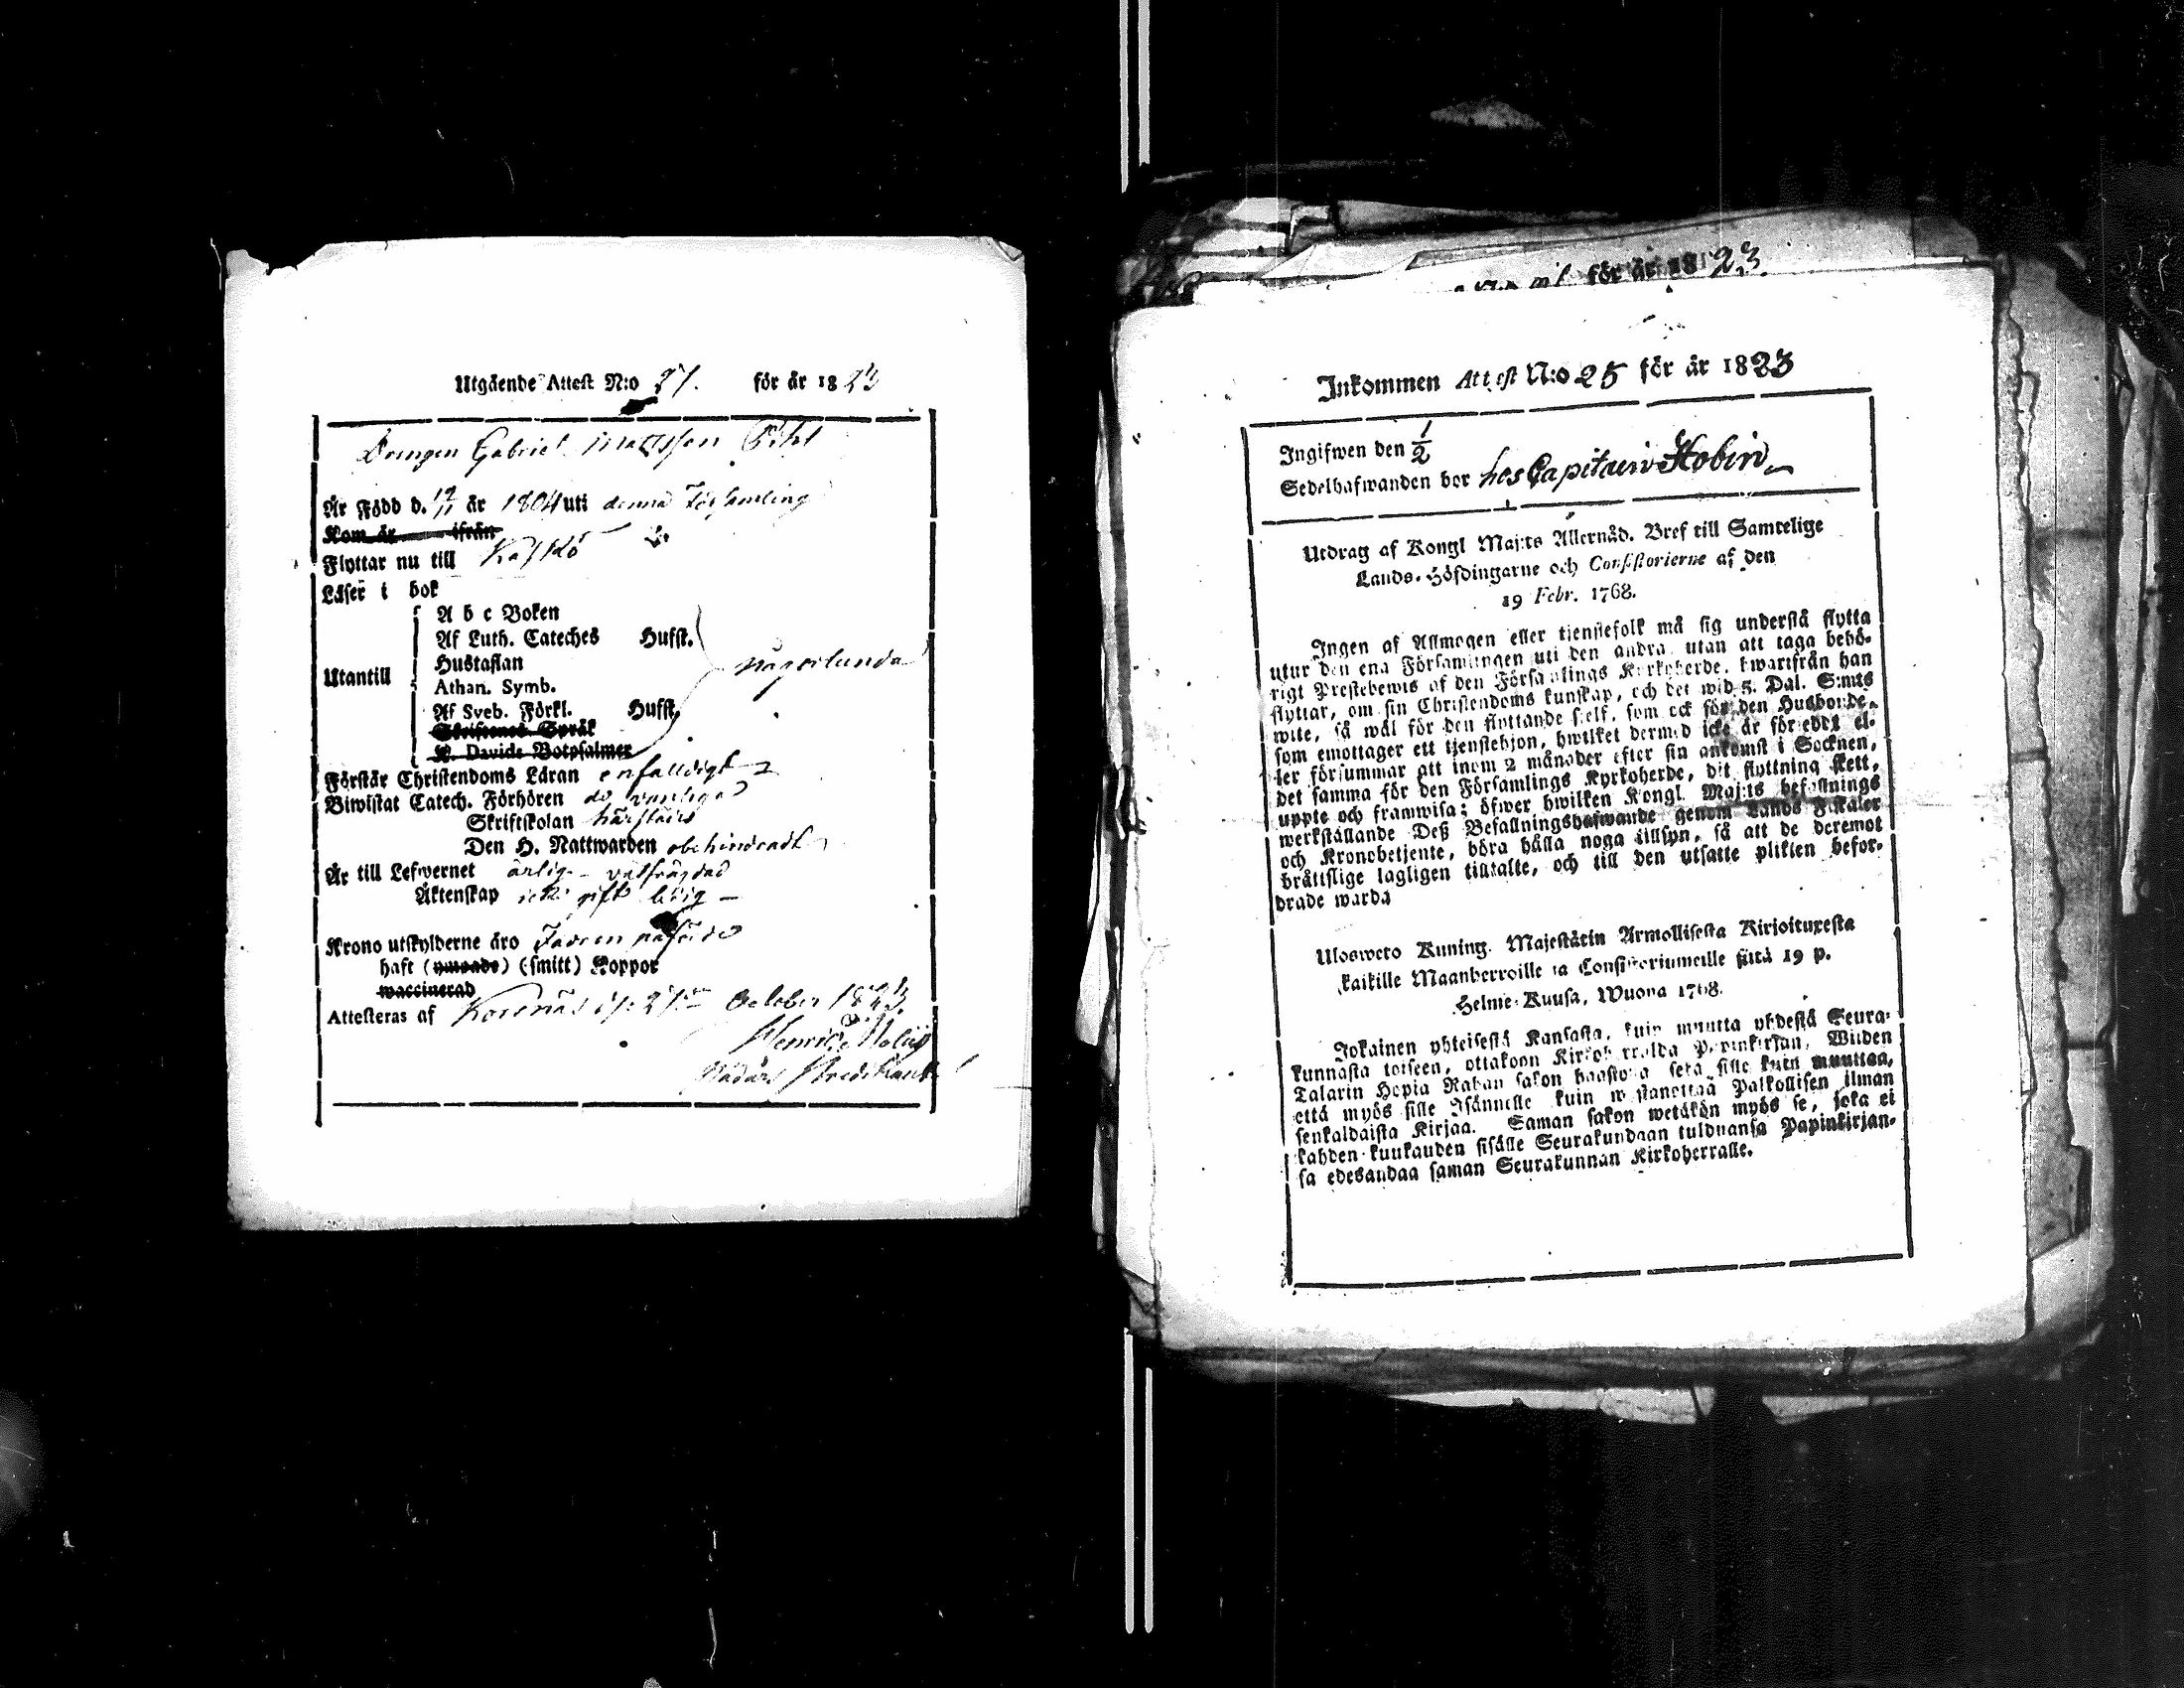 Utgående Attest N:o 27. för år 1823
Drengen Gabriel Mattsson Pihl
Är Född d. 12/11 år 1804 uti denna Församling
Kom år ifrån
Flyttar nu till Kaskö
Läser i bok
A b c Boken
Af Luth. Cateches Hufst.
Hustaflan
Utantill
någorlunda
Athan. Symb.
Af Sveb. Förkl. Hufst.
Skriftenes Språk
K. Davids Botpsalmer
Förstår Christendoms Läran enfalldigt
Biwistat Catech. Förhören do vanliga
Skriftskolan härstädes
Den H. Nattwarden obehindradt
Är till Lefwernet ärlig - välfrägdad
Äktenskap icke gift ledig -
Krono utskylderne äro Fadren påförde
haft (ympade) (smitt) Koppor
waccinerad
Attesteras af Korsnäs October 1823.
Henric
för år 1823
Inkommen Attest N:o 25 för år 1823
Ingifwen den 1/2
Sedelhafwanden bor hos Capitain Hobin
Utdrag af Kongl Maj:ts Allernåd. Bref till Samtelige
Lands-Höfdingarne och Consistorierne af den
19 Febr. 1768.
Ingen af Allmogen eller tjenstefolk må sig understå flytta
utur den ena Församlingen uti den andra, utan att taga behö-
rigt Prestebewis af den Församlings Kyrkoherde, hwarifrån han
flyttar, om sin Christendoms kunskap, och det wid 5. Dal. S:mts
wite, så wäl för den flyttande sielf, som ock för den Husbonde,
som emottager ett tjenstehjon, hwilket dermed icke är försedt el-
ler försummar att inom 2 månader efter sin ankomst i Socknen,
det samma för den Församlings Kyrkoherde, dit flyttning skett,
uppte och framwisa; öfwer hwilken Kongl. Maj:ts befallnings
werkställande Deß Befallningshafwande genom Lands Fiskaler
och Kronobetjente, böra hålla noga tillsyn, så att de deremot
bråttslige lagligen tilltalte, och till den utsatte plikten befor-
drade warda
Ulosweto Kuning. Majestätin Armollisesta Kirjoituxesta
kaikille Maanherroille ja Consistoriumeille siitä 19 p.
Helme-Kuusa, Wuona 1768.
Jokainen yhteisestä Kansasta, kuin muutta yhdestä Seura-
kunnasta toiseen, ottakoon Kirkoherralda Papinkirjan, Wiiden
Talarin Hopia Rahan sakon haastolla sekä sille kuin muuttaa,
että myös sille Isännelle kuin wastanottaa Palkollisen ilman
senkaldaista Kirjaa. Saman sakon wetäkön myös se, joka ei
kahden kuukauden sisälle Seurakundaan tulduansa Papinkirjan-
sa edesandaa saman Seurakunnan Kirkoherralle.